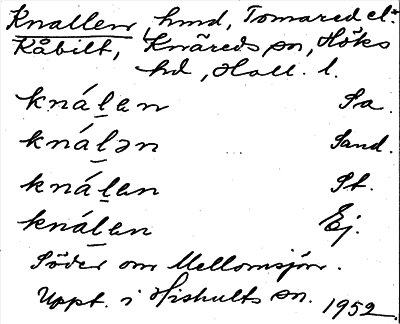 Knallen, hmd, Tomared el.
Kåbilt, Knäreds sn, Höks
hd, Hall. l.
knáḻen Sa.
knáḻən Sand.
knáḻen St.
knáḻen Ej.
Söder om Mellomsjön.
Uppt. i Hishults sn. 1952.